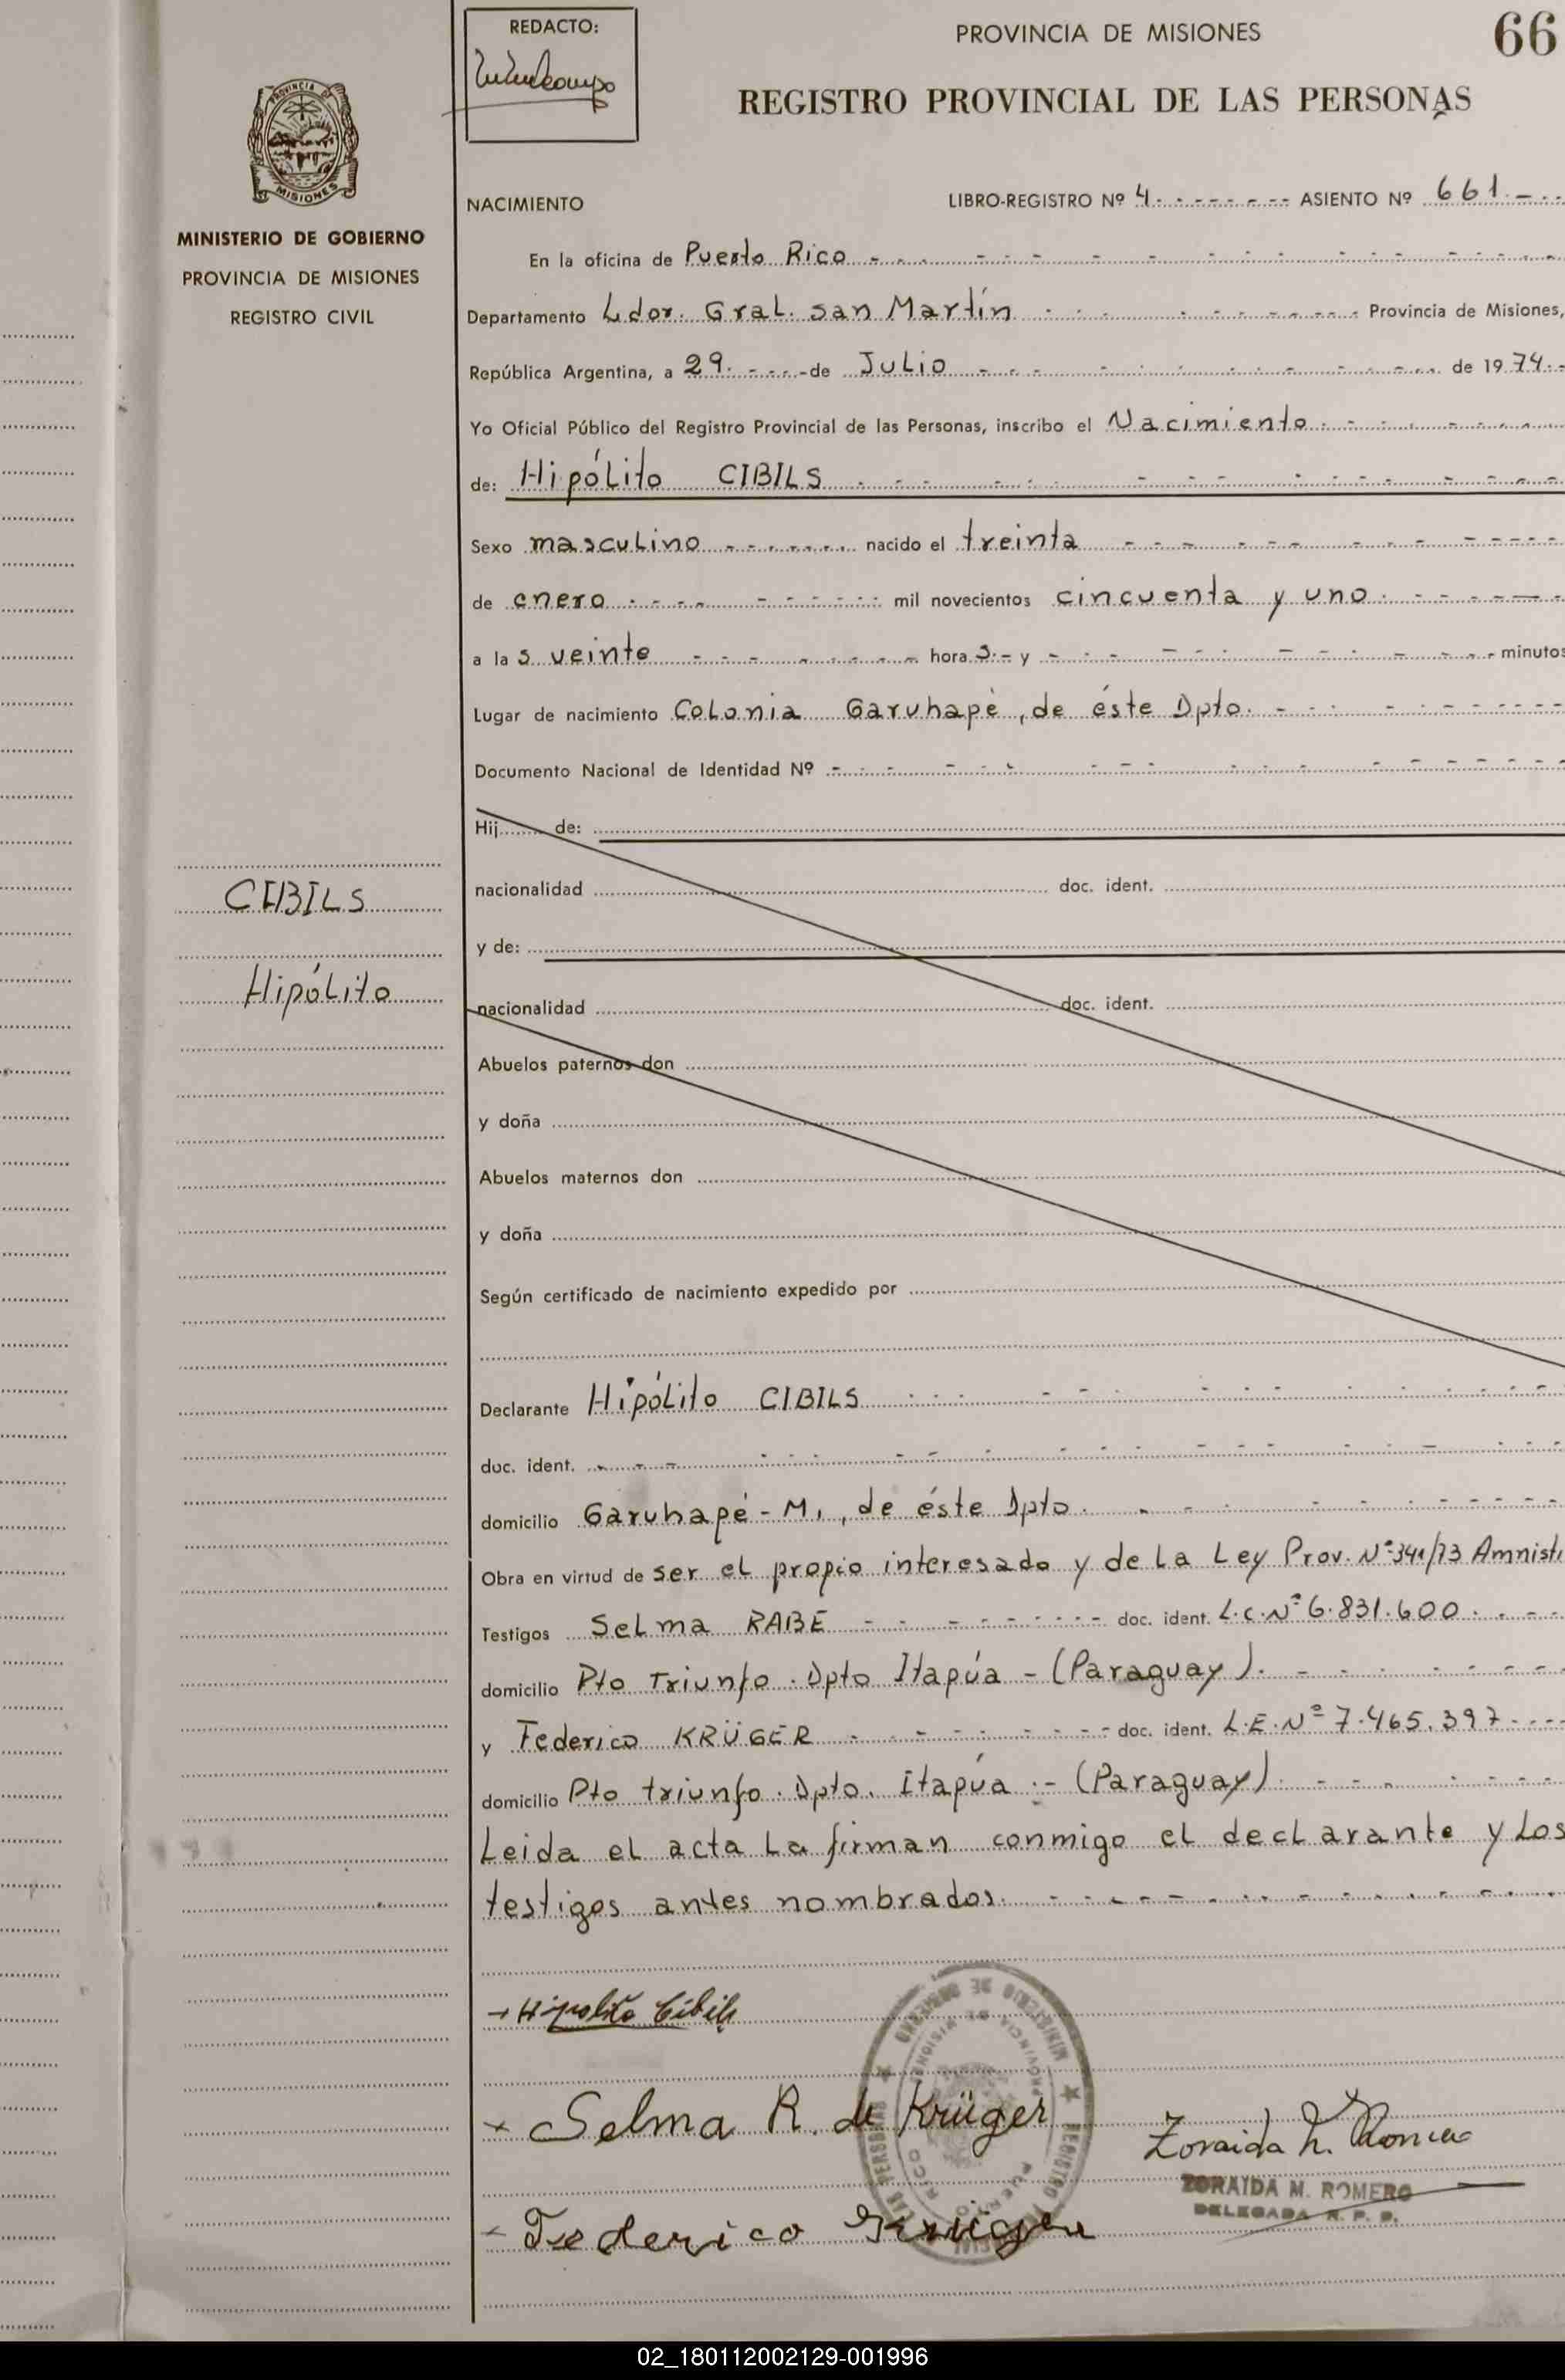 REDACTO:
PROVINCIA DE MISIONES
66
REGISTRO PROVINCIAL DE LAS PERSONAS
PROVINCIA DE
MISIONES
MINISTERIO DE GOBIERNO
PROVINCIA DE MISIONES
REGISTRO CIVIL
NACIMIENTO LIBRO-REGISTRO Nº 4 ASIENTO Nº 661
En la oficina de Puerto Rico
Departamento Ldor. Gral. san Martín Provincia de Misiones,
República Argentina, a 29 de Julio de 1974
Yo Oficial Público del Registro Provincial de las Personas, inscribo el Nacimiento
de: Hipólito CIBILS
Sexo masculino nacido el treinta
de enero mil novecientos cincuenta y uno
a la s veinte hora s y minutos
Lugar de nacimiento Colonia Garuhapé, de éste Dpto.
Documento Nacional de Identidad Nº
Hij de:
nacionalidad doc. ident.
CIBILS
y de:
Hipólito
nacionalidad doc. ident.
Abuelos paternos don
y doña
Abuelos maternos don
y doña
Según certificado de nacimiento expedido por
Declarante Hipólito CIBILS
doc. ident.
domicilio Garuhapé - M, de éste Dpto.
Obra en virtud de ser el propio interesado y de La Ley Prov. Nº 341/73 Amnisti
Testigos Selma RABE doc. ident. L.C. Nº 6.831.600
domicilio Pto Triunfo. Dpto Itapúa - (Paraguay).
y Federico KRÜGER doc. ident. L.E. Nº 7.465.397
domicilio Pto triunfo. Dpto. Itapúa - (Paraguay)
Leida el acta La firman conmigo el declarante y Los
testigos antes nombrados.
Hipolito Cibils
Selma R. de Krüger
Zoraida M. Romero
ZORAIDA M. ROMERO
DELEGADA R. P. P.
Federico Krüger
MINISTERIO DE GOBIERNO ★ REGISTRO PERSONAS ★
PROVINCIA DE MISIONES
PUERTO RICO
02_180112002129-001996